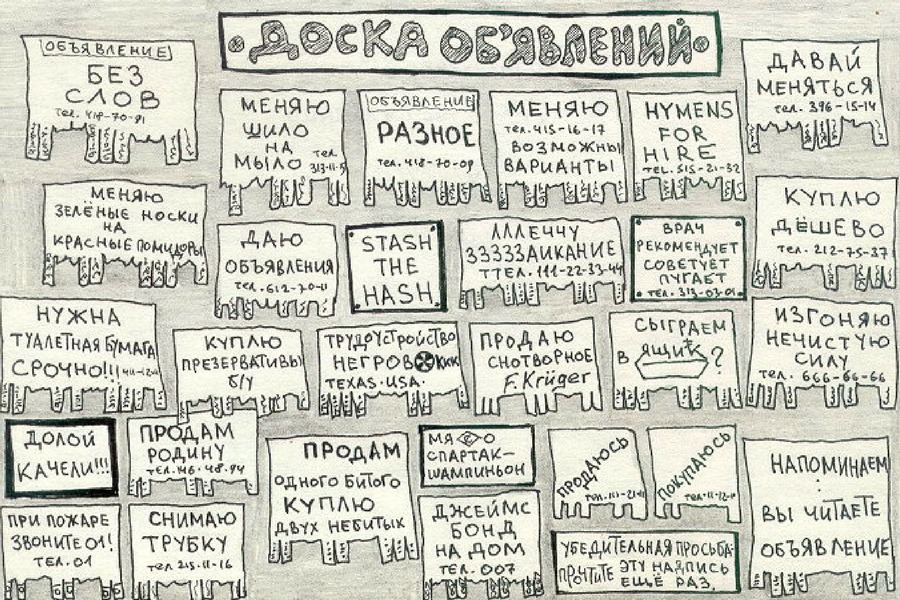 ДОСКА ОБ'ЯВЛЕНИЙ
ОБЪЯВЛЕНИЕ
БЕЗ
СЛОВ
тел. 419-70-91
МЕНЯЮ
ШИЛО
НА
МЫЛО тел.
313-11-5
ОБЪЯВЛЕНИЕ
РАЗНОЕ
тел. 418-70-09
МЕНЯЮ
тел. 415-16-17
ВОЗМОЖНЫ
ВАРИАНТЫ
HYMENS
FOR
HIRE
TEL. 515-21-32
ДАВАЙ
МЕНЯТЬСЯ
тел. 396-15-14
МЕНЯЮ
ЗЕЛЁНЫЕ НОСКИ
НА
КРАСНЫЕ ПОМИДОРЫ
ДАЮ
ОБЪЯВЛЕНИЯ
тел. 612-70-11
STASH
THE
HASH
ЛЛЛЕЧЧУ
ЗЗЗЗЗАИКАНИЕ
ТТЕЛ. 111-22-33-44
ВРАЧ
РЕКОМЕНДУЕТ
СОВЕТУЕТ
ПУГАЕТ
ТЕЛ. 313-03-01
КУПЛЮ
ДЁШЕВО
тел. 212-75-37
НУЖНА
ТУАЛЕТНАЯ БУМАГА
СРОЧНО!!!
КУПЛЮ
ПРЕЗЕРВАТИВЫ
Б/У
ТРУДОУСТРОЙСТВО
НЕГРОВ ККК
TEXAS. USA.
ПРОДАЮ
СНОТВОРНОЕ
F. Krüger
СЫГРАЕМ
В ЯЩИК ?
ИЗГОНЯЮ
НЕЧИСТУЮ
СИЛУ
тел. 666-66-66
ДОЛОЙ
КАЧЕЛИ!!!
ПРОДАМ
РОДИНУ
тел. 146-48-94
ПРОДАМ
ОДНОГО БИТОГО
КУПЛЮ
ДВУХ НЕБИТЫХ
МЯСО
СПАРТАК-
ШАМПИНЬОН
ПРОДАЮСЬ
ПОКУПАЮСЬ
НАПОМИНАЕМ
:
ВЫ ЧИТАЕТЕ
ОБЪЯВЛЕНИЕ
ПРИ ПОЖАРЕ
ЗВОНИТЕ 01!
ТЕЛ. 01
СНИМАЮ
ТРУБКУ
тел 215-11-16
ДЖЕЙМС
БОНД
НА ДОМ
ТЕЛ. 007
УБЕДИТЕЛЬНАЯ ПРОСЬБА:
ПРОЧТИТЕ ЭТУ НАДПИСЬ
ЕЩЁ РАЗ.